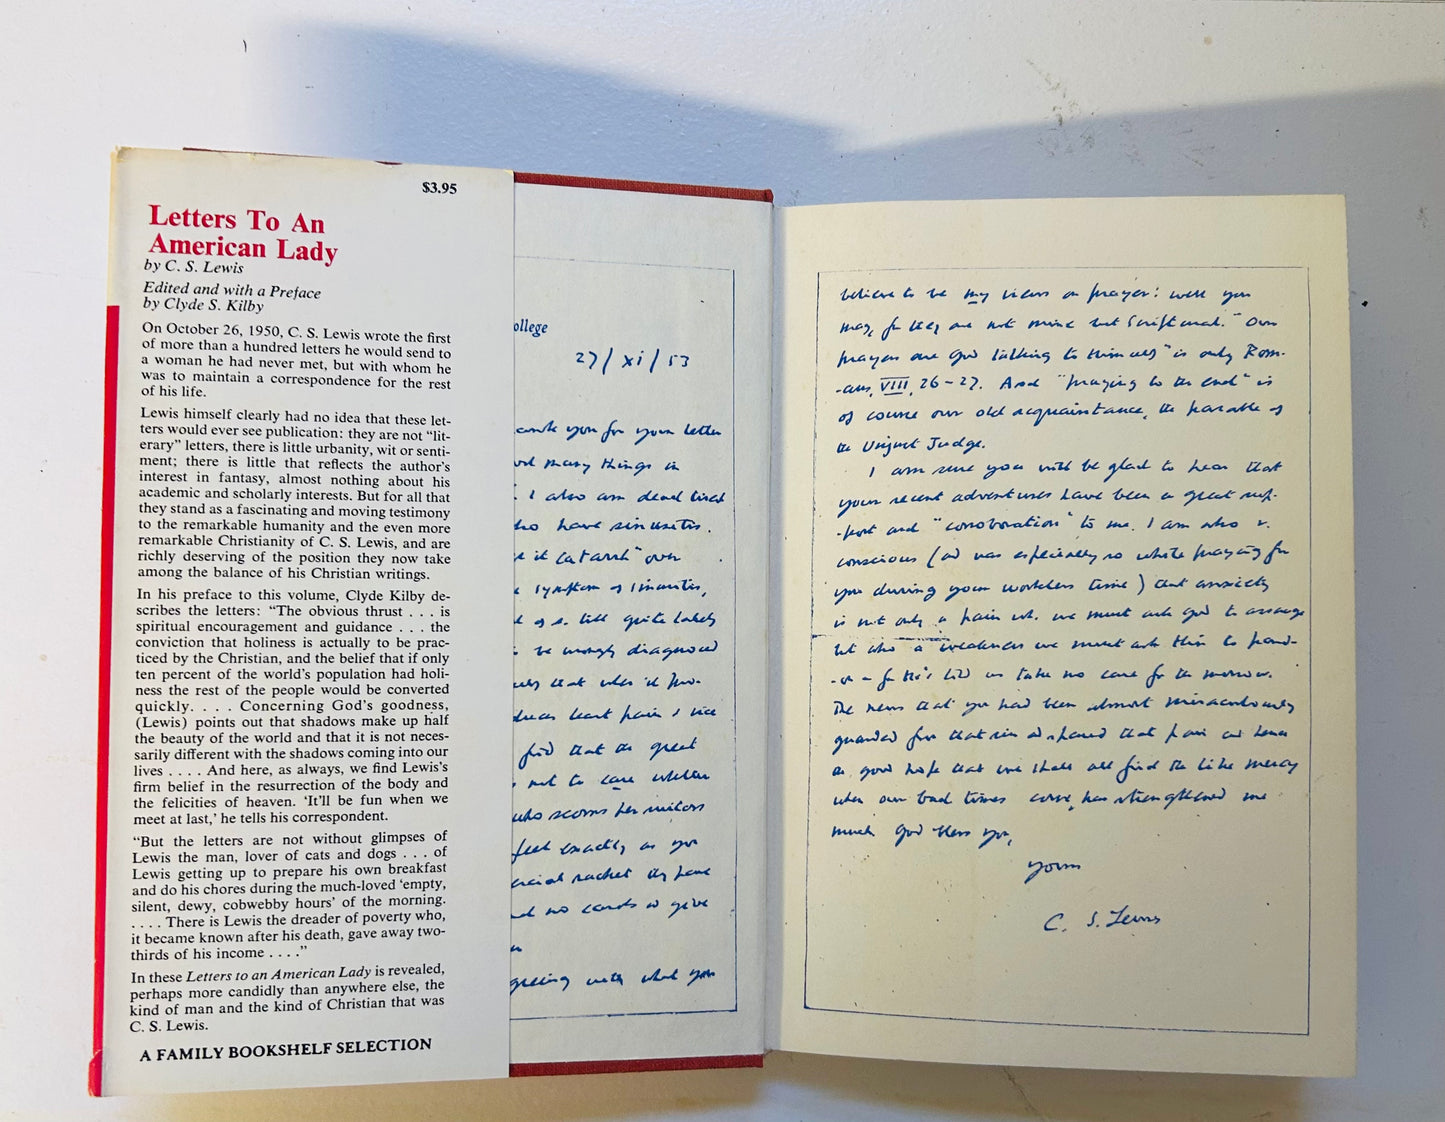 $3.95
Letters To An
American Lady
by C. S. Lewis
Edited and with a Preface
by Clyde S. Kilby
On October 26, 1950, C. S. Lewis wrote the first
of more than a hundred letters he would send to
a woman he had never met, but with whom he
was to maintain a correspondence for the rest
of his life.
Lewis himself clearly had no idea that these let-
ters would ever see publication: they are not “lit-
erary” letters, there is little urbanity, wit or senti-
ment; there is little that reflects the author’s
interest in fantasy, almost nothing about his
academic and scholarly interests. But for all that
they stand as a fascinating and moving testimony
to the remarkable humanity and the even more
remarkable Christianity of C. S. Lewis, and are
richly deserving of the position they now take
among the balance of his Christian writings.
In his preface to this volume, Clyde Kilby de-
scribes the letters: “The obvious thrust . . . is
spiritual encouragement and guidance . . . the
conviction that holiness is actually to be prac-
ticed by the Christian, and the belief that if only
ten percent of the world’s population had holi-
ness the rest of the people would be converted
quickly. . . . Concerning God’s goodness,
(Lewis) points out that shadows make up half
the beauty of the world and that it is not neces-
sarily different with the shadows coming into our
lives . . . . And here, as always, we find Lewis’s
firm belief in the resurrection of the body and
the felicities of heaven. ‘It’ll be fun when we
meet at last,’ he tells his correspondent.
“But the letters are not without glimpses of
Lewis the man, lover of cats and dogs . . . of
Lewis getting up to prepare his own breakfast
and do his chores during the much-loved ‘empty,
silent, dewy, cobwebby hours’ of the morning.
. . . . There is Lewis the dreader of poverty who,
it became known after his death, gave away two-
thirds of his income . . . .”
In these Letters to an American Lady is revealed,
perhaps more candidly than anywhere else, the
kind of man and the kind of Christian that was
C. S. Lewis.
A FAMILY BOOKSHELF SELECTION
ollege
27/xi/53
you for your letter
many things in
I also am dead tired
have sinusitis.
it catarrh” over
symptom of sinusitis,
of s. till quite lately
be wrongly diagnosed
that when it pro-
duces least pain &
find that the great
not to care whether
who scorns her visitors
feel exactly as you
racket they have
no cards & give
greeing with what you
believe to be my views on prayer: well you
may, for they are not mine but Scriptural. “Our
prayers are God talking to Himself” is only Rom-
-ans, VIII, 26-27. And “praying to the end” is
of course our old acquaintance, the parable of
the Unjust Judge.
I am sure you will be glad to hear that
your recent adventures have been a great sup-
-port and “corroboration” to me. I am also v.
conscious (and was especially so while praying for
you during your workless time) that anxiety
is not only a pain wh. we must ask God to assuage
but also a weakness we must ask Him to pardon-
-for He’s told us take no care for the morrow.
The news that you had been almost miraculously
guarded from that sin and spared that pain and hence
the good hope that we shall all find the like mercy
when our bad times come, has strengthened me
much. God bless you,
yours
C. S. Lewis